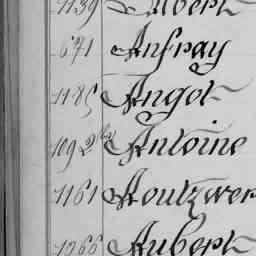 1139 Aubert
671 Anfray
1185 Angot
1092 bis Antoine
1161 Aoutzwer
1266 Aubert